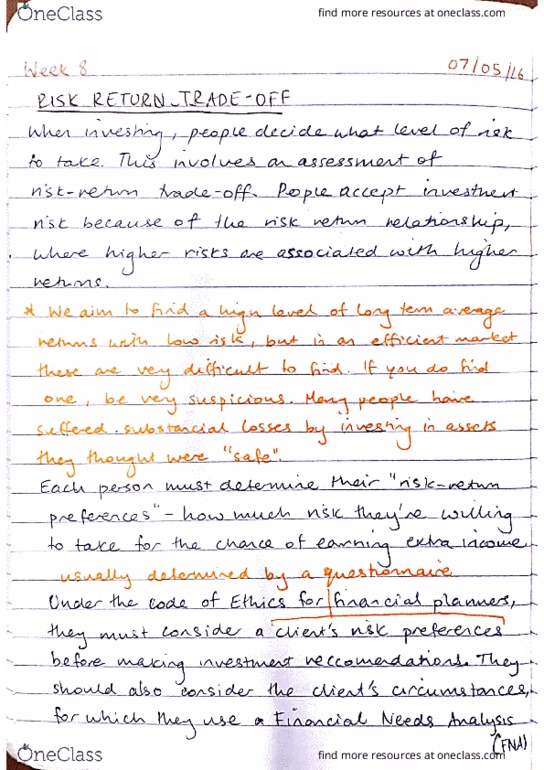 OneClass
find more resources at oneclass.com
Week 8
07/05/16
RISK RETURN TRADE-OFF
When investing, people decide what level of risk
to take. This involves an assessment of
risk-return trade-off. People accept investment
risk because of the risk return relationship,
where higher risks are associated with higher
returns.
* We aim to find a high level of long term average
returns with low risk, but in an efficient market
these are very difficult to find. If you do find
one, be very suspicious. Many people have
suffered substancial losses by investing in assets
they thought were "safe".
Each person must determine their "risk-return
preferences" - how much risk they're willing
to take for the chance of earning extra income
usually determined by a questionnaire
Under the code of Ethics for financial planners,
they must consider a client's risk preferences
before making investment reccomendations. They
should also consider the client's circumstances,
for which they use a Financial Needs Analysis
(FNA)
OneClass
find more resources at oneclass.com